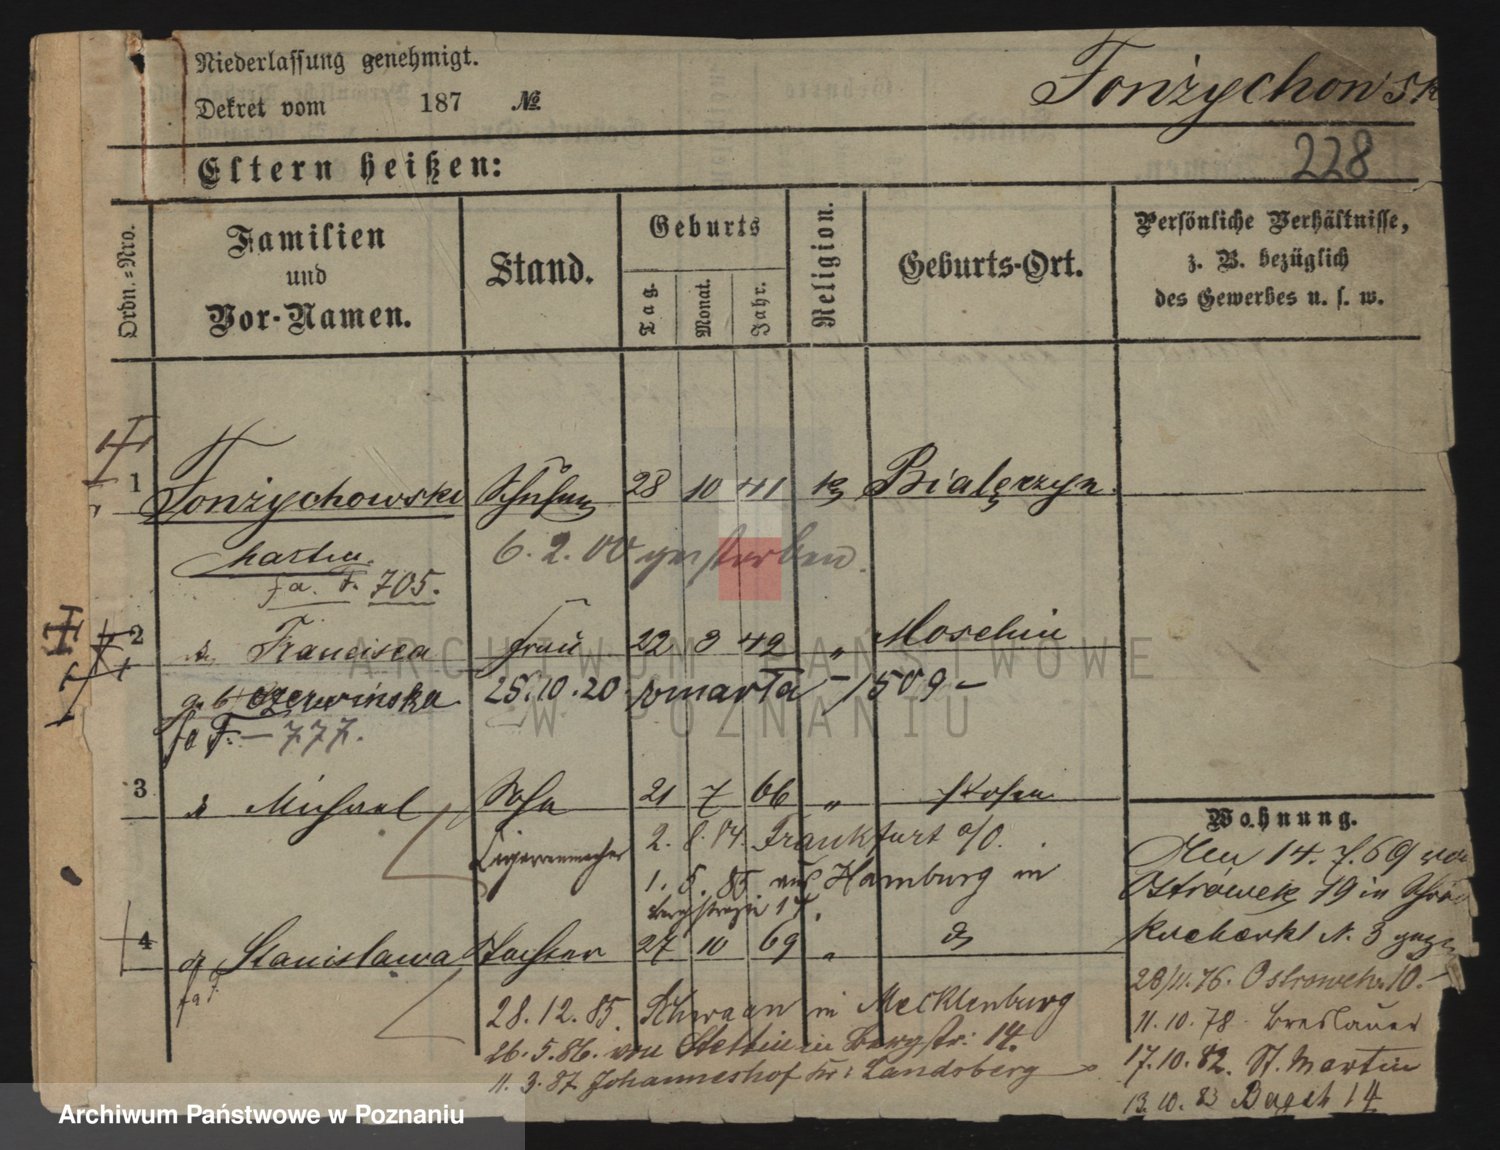 Niederlassung genehmigt.
Dekret vom 187 №
Tonżychowsk
228
Eltern heißen:
Ordn.=Nro.
Familien
und
Vor-Namen.
Stand.
Geburts
Tag.
Monat.
Jahr.
Religion.
Geburts-Ort.
Persönliche Verhältnisse,
z. B. bezüglich
des Gewerbes u. s. w.
1 Tonżychowski 28 10 41 k Bialęzzyn
Martin. 6. 2. 00 gestorben.
fa. F. 705.
2 Francisca Frau 22 3 42 „ Moschin
geb Czerwińska 25.10.20. zmarła - /509 -
fa F. - 777.
3 Michael Sohn 21 7 66 „ Posen
Cigarrenmacher 2. 8. 84. Frankfurt a/O.
1. 5. 85. aus Hamburg in
Bergstraße 14.
4 Stanislawa Tochter 27 10 69 „
fa F
28. 12. 85. Schwaan in Mecklenburg
26. 5. 86. von Stettin in Bergstr: 14.
11. 3. 87 Johanneshof Kr: Landsberg
Wohnung.
Den 14. 7. 69 von
Ostrówek 19 in
N. 3
28/11. 76. Ostrowek 10.
11. 10. 78 Breslauer
17. 10. 82. St. Martin
13. 10. 83 14
ARCHIWUM PAŃSTWOWE
W POZNANIU
Archiwum Państwowe w Poznaniu